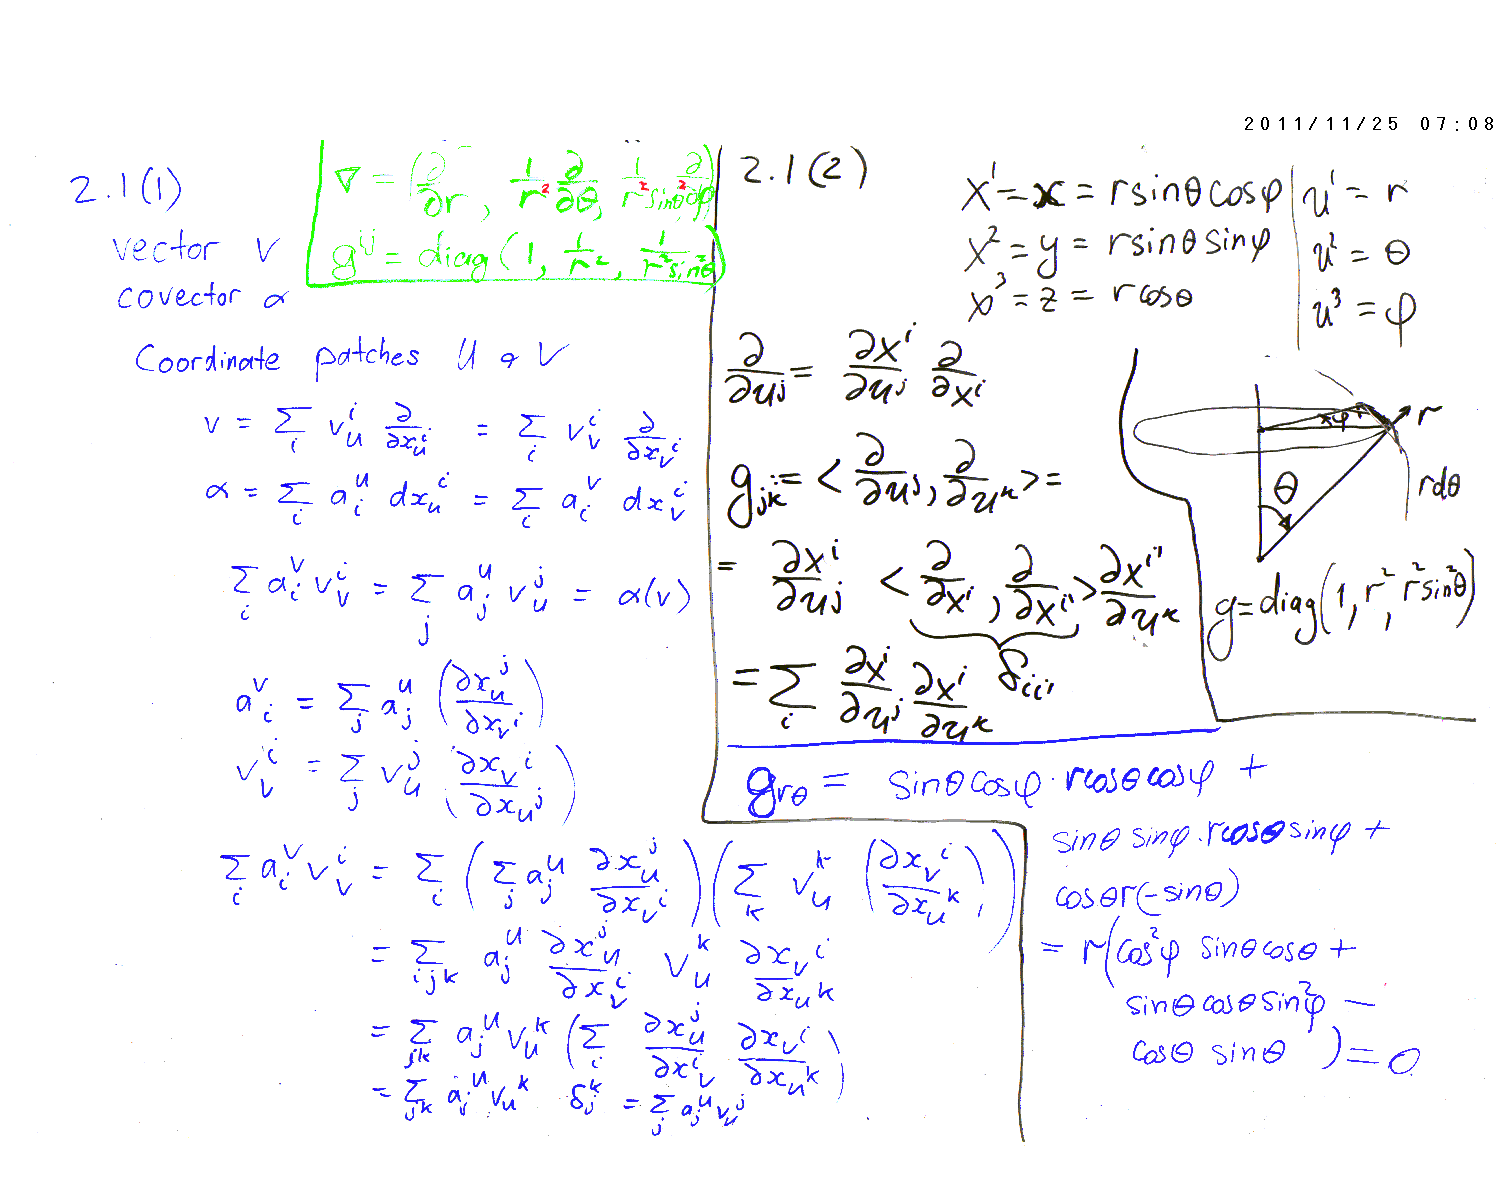 2011/11/25 07:08
2.1(1)
∇ = (∂/∂r, 1/r² ∂/∂θ, 1/r²sin²θ ∂/∂φ)
g^{ij} = diag(1, 1/r², 1/r²sin²θ)
vector v
covector α
Coordinate patches U & V
v = Σ_i v_U^i ∂/∂x_U^i = Σ_i v_V^i ∂/∂x_V^i
α = Σ_i a_i^U dx_U^i = Σ_i a_i^V dx_V^i
Σ_i a_i^V v_V^i = Σ_j a_j^U v_U^j = α(v)
a_i^V = Σ_j a_j^U (∂x_U^j/∂x_V^i)
v_V^i = Σ_j v_U^j (∂x_V^i/∂x_U^j)
Σ_i a_i^V v_V^i = Σ_i (Σ_j a_j^U ∂x_U^j/∂x_V^i)(Σ_k v_U^k (∂x_V^i/∂x_U^k))
= Σ_{ijk} a_j^U ∂x_U^j/∂x_V^i v_U^k ∂x_V^i/∂x_U^k
= Σ_{jk} a_j^U v_U^k (Σ_i ∂x_U^j/∂x_V^i ∂x_V^i/∂x_U^k)
= Σ_{jk} a_j^U v_U^k δ_j^k = Σ_j a_j^U v_U^j
2.1(2)
x^1 = x = r sinθ cosφ
x^2 = y = r sinθ sinφ
x^3 = z = r cosθ
u^1 = r
u^2 = θ
u^3 = φ
∂/∂u^j = ∂x^i/∂u^j ∂/∂x^i
g_{jk} = <∂/∂u^j, ∂/∂u^k> =
= ∂x^i/∂u^j <∂/∂x^i, ∂/∂x^{i'}> ∂x^{i'}/∂u^k
δ_{ii'}
= Σ_i ∂x^i/∂u^j ∂x^i/∂u^k
φ
r
θ
rdθ
g = diag(1, r², r²sin²θ)
g_{rθ} = sinθ cosφ · r cosθ cosφ +
sinθ sinφ · r cosθ sinφ +
cosθ r(-sinθ)
= r(cos²φ sinθ cosθ +
sinθ cosθ sin²φ −
cosθ sinθ) = 0